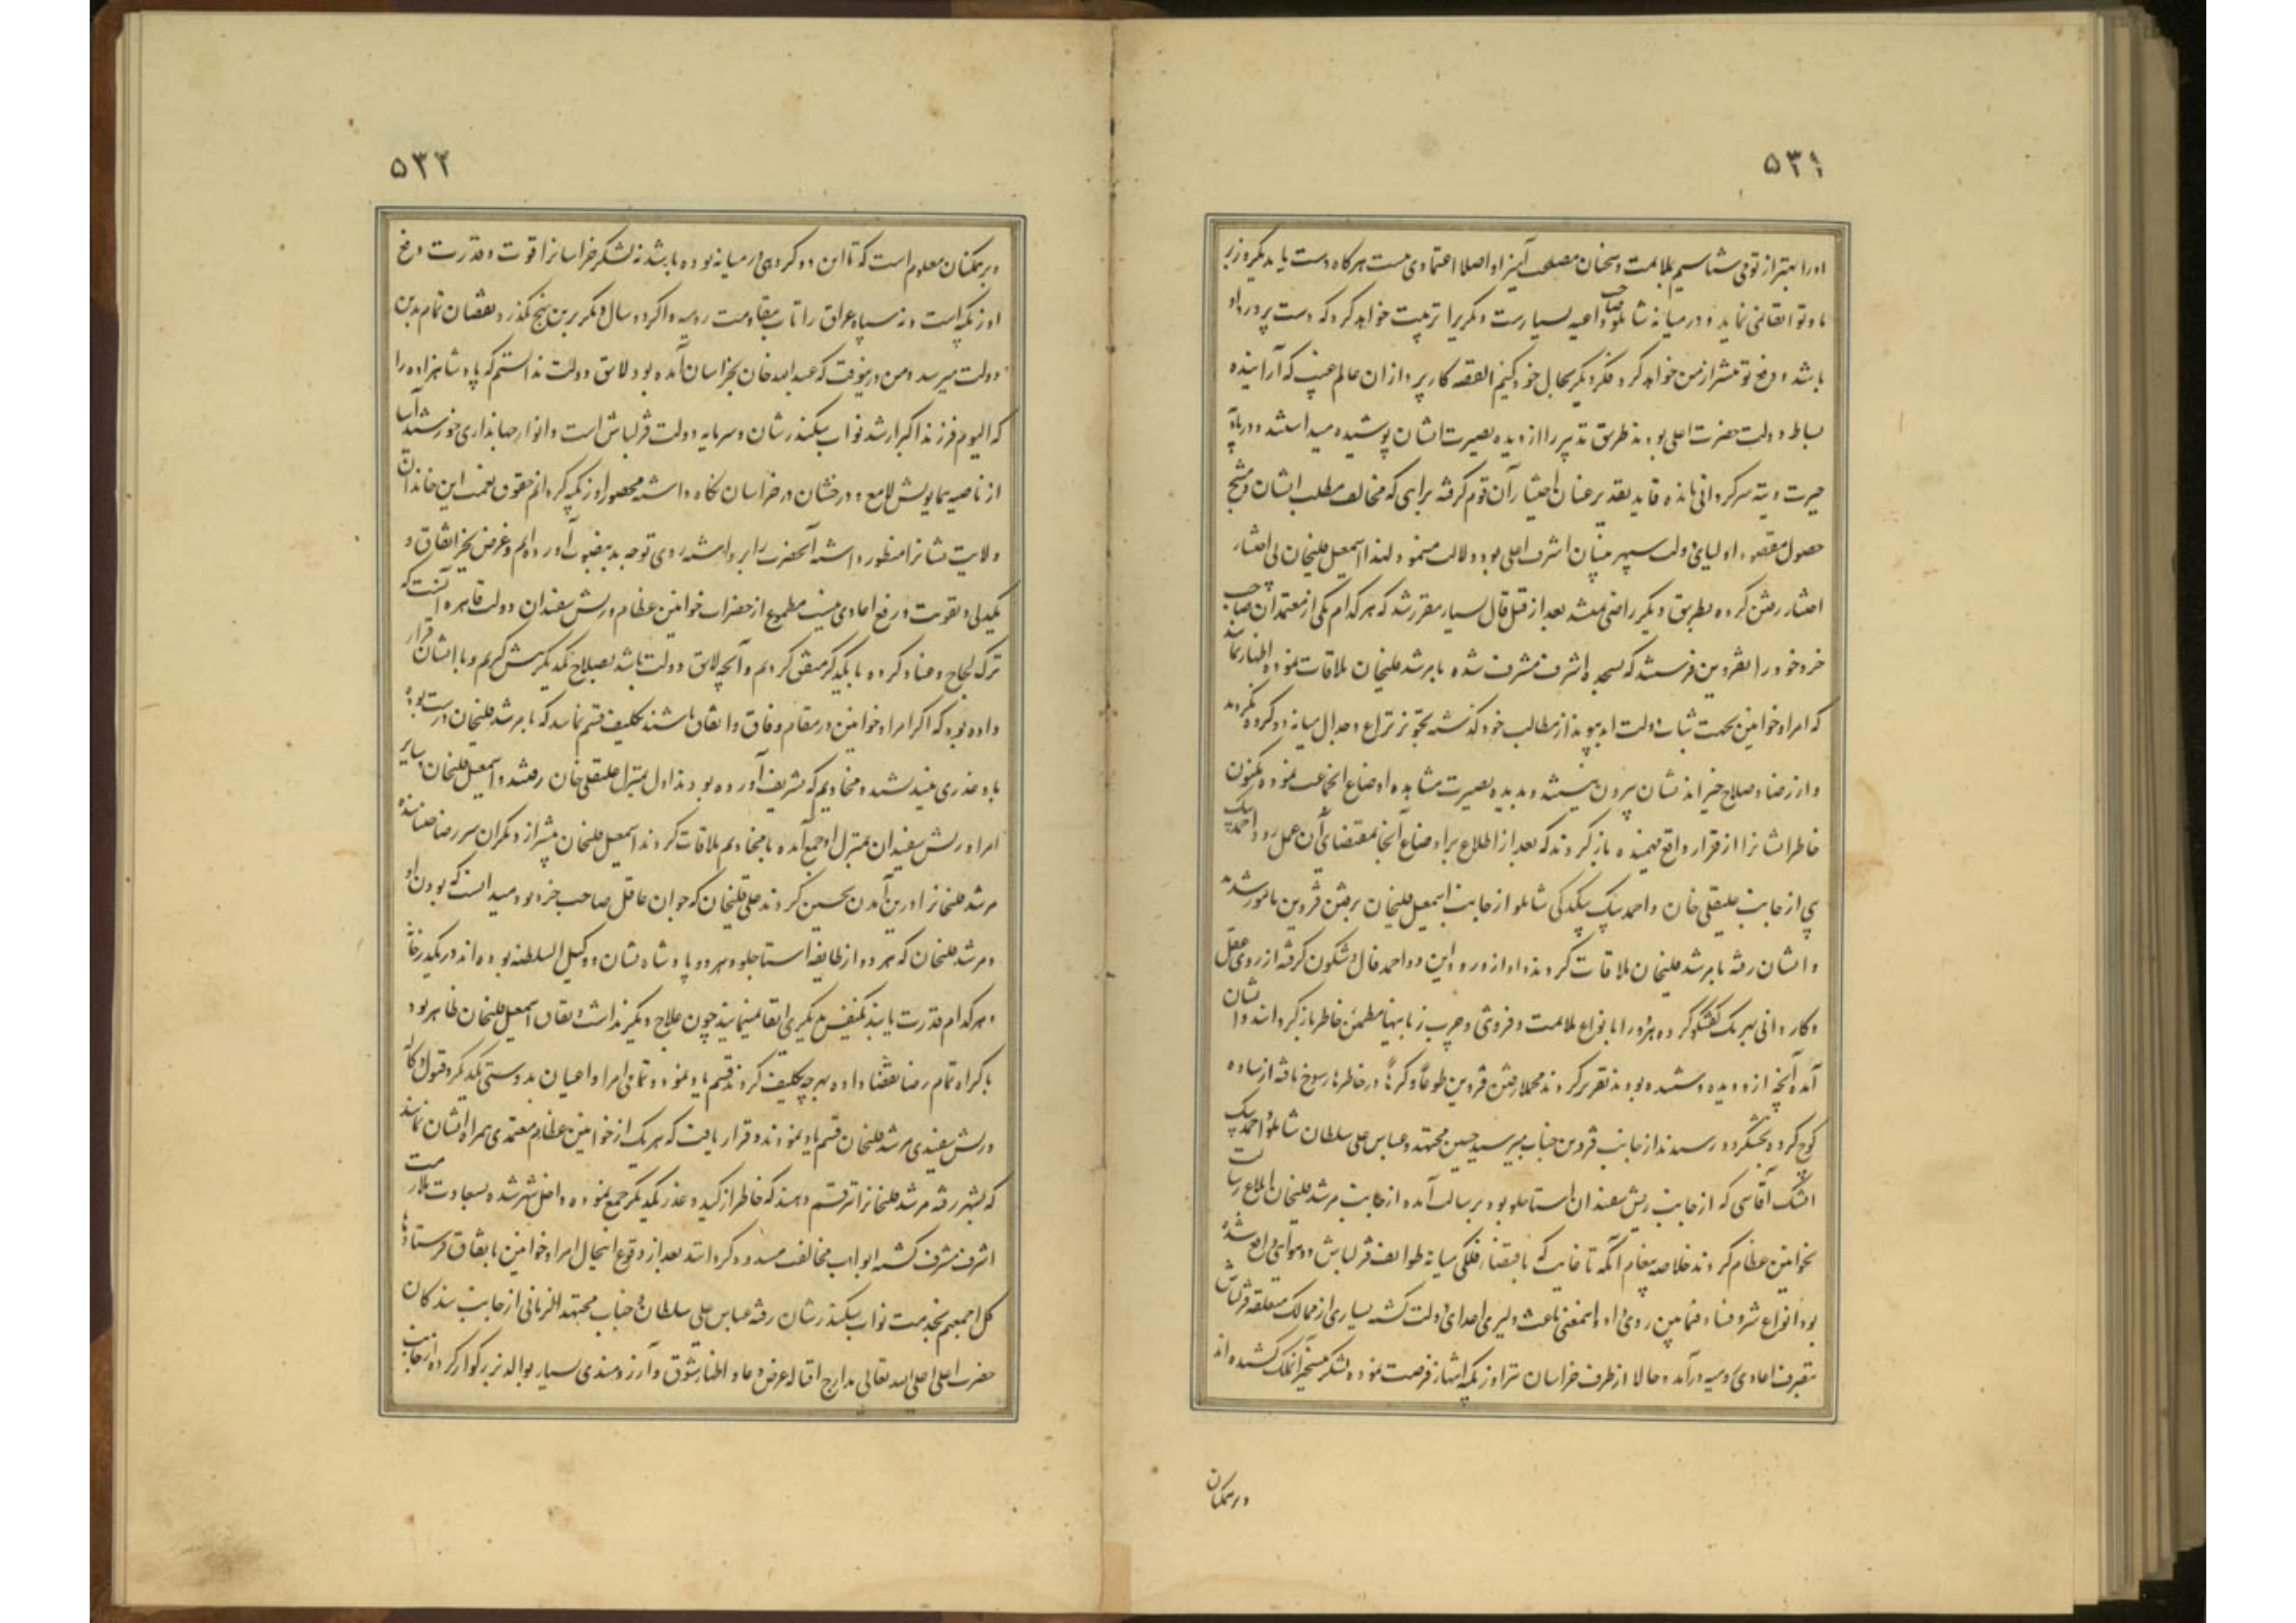 ۵۳۱
او را بهتر از تو می شناسیم بملایمت و سخنان مصلحت آمیز او اصلا اعتمادی نیست هرکاه دست یابد یکروز بر
ما و تو ابقا نمی نماید و در میانه شاملو صاحب داعیه بسیار است دیگریرا تربیت خواهد کرد که دست پرورد او
باشد و دفع تو پیشتر از من خواهد کرد فکر دیگر بحال خود کنیم القصه کارپردازان عالم غیب که آراینده
بساط دولت حضرت اعلی بودند طریق تدبیر را از دیده بصیرت ایشان پوشیده میداشتند و در بادیه
حیرت و تیه سرکردانی مانده قاید تقدیر عنان اختیار آن قوم کرفته براهی که مخالف مطلب ایشان و منتج
حصول مقصود اولیای دولت سپهر بنیان اشرف اعلی بود دلالت مینمود لهذا اسمعیل قلیخان بی اختیار
اختیار رفتن کرده بطریق دیکر راضی نمیشد بعد از قیل قال بسیار مقرر شد که هر کدام یکی از معتمدان صاحب
خرد خود را بقزوین فرستند که بسجده اشرف مشرف شده با مرشد قلیخان ملاقات نموده اظهار نمایند
که امرا و خوانین بجهت ثبات دولت ابد پیوند از مطالب خود کذشته تجویز نزاع و جدال میانه دو کروه نکردند
و از رضا و صلاح خیراندیشان بیرون نیستند و بدیده بصیرت مشاهده اوضاع انجماعت نموده مکنون
خاطر ایشانرا از قرار واقع فهمیده باز کردند که بعد از اطلاع بر اوضاع آنجا بمقتضای آن عمل رود احمد بیک
پی از جانب علیقلی خان و احمد بیک بیکدلی شاملو از جانب اسمعیل قلیخان برفتن قزوین مامور شدند
و ایشان رفته با مرشد قلیخان ملاقات کردند و او از ورود این دو احمد فال و شکون کرفته از روی عقل
و کاردانی بهر یک کفتکو کرده هر دو را بانواع ملایمت و فروتنی و چرب زبانیها مطمئن خاطر باز کردانید و ایشان
آمده آنچه از او دیده و شنیده بودند تقریر کردند مجملا رفتن قزوین طوعا و کرها در خاطرها رسوخ یافته از ساوه
کوچ کرده بخشکرود رسیدند از جانب قزوین جناب میر سید حسین مجتهد و عباس علی سلطان شاملو و احمد بیک
ایشک آقاسی که از جانب ریش سفیدان استاجلو بود برسالت آمده از جانب مرشد قلیخان ابلاغ رسالت
بخوانین عظام کردند خلاصه پیغام آنکه تا غایت که باقتضاء فلکی میانه طوایف قزلباش دو هوایی واقع شده
بود انواع شر و فساد فیمابین روی داد و اینمعنی باعث دلیری اعدای دولت کشته بسیاری از ممالک متعلقه قزلباش
بتصرف اعادی رومیه درآمد و حالا از طرف خراسان نیز اوزبکیه انتهاز فرصت نموده لشکر بتسخیر آنملک کشیده اند
و بر همکنان
۵۳۲
و بر همکنان معلوم است که تا این دو کروهی در میانه بوده باشد نه لشکر خراسانرا قوت و قدرت دفع
اوزبکیه است و نه سپاه عراق را تاب مقاومت رومیه و اکر دو سال دیکر برین نهج بکذرد نقصان تمام بدین
دولت میرسد و من در نیوقت که عبدالله خان بخراسان آمده بود لایق دولت ندانستم که پادشاهزاده را
که الیوم فرزند اکبر ارشد نواب سکندر شان و سرمایه دولت قزلباش است و انوار جهانداری خورشید آسا
از ناصیه همایونش لامع و درخشان در خراسان نکاه داشته محصور اوزبکیه کردانم حقوق نعمت این خاندان
ولایت نشانرا منظور داشته آنحضرت را برداشته روی توجه بدینصوب آورده ام و غرض بجز اتفاق و
یکدلی و تقویت و رفع اعادی نیست مطموع از حضرات خوانین عظام و ریش سفیدان دولت قاهره آنست که
ترک لجاج و عناد کرده با یکدیکر متفق کردیم و آنچه لایق دولت باشد بصلاح یکدیکر پیش کیریم و با ایشان قرار
داده بود که اکر امرا و خوانین در مقام وفاق و اتفاق باشند تکلیف قسم نمایند که با مرشد قلیخان درست بوده
با او غدری نیندیشند و مخادیم که تشریف آورده بودند اول بمنزل علیقلی خان رفتند و اسمعیل قلیخان و سایر
امرا و ریش سفیدان بمنزل او جمع آمده با مخادیم ملاقات کردند اسمعیل قلیخان پیشتر از دیکران سر رضا جنبانیده
مرشد قلیخانرا درین آمدن تحسین کردند علی قلیخان که جوان عاقل صاحب خرد بود میدانست که بودن او
و مرشد قلیخان که هر دو از طایفه استاجلو و هر دو پادشاه نشان و وکیل السلطنه بوده اند در یکدرخانه
و هر کدام قدرت یابند یکنفس بدیکری ابقا نمینمایند چون علاج دیکر نداشت و نفاق اسمعیل قلیخان ظاهر بود
باکراه تمام رضا بقضا داده بهر چه تکلیف کردند قسم یاد نمود و تمامی امرا و اعیان بدوستی یکدیکر و قبول وکالت
و ریش سفیدی مرشد قلیخان قسم یاد نمودند و قرار یافت که هر یک از خوانین عظام معتمدی همراه ایشان نمایند
که بشهر رفته مرشد قلیخانرا نیز قسم دهند که خاطر از کید و غدر یکدیکر جمع نموده داخل شهر شده بسعادت ملازمت
اشرف مشرف کشته ابواب مخالفت مسدود کردانند بعد از وقوع اینحال امرا و خوانین باتفاق فرستادها
کل اجمعهم بخدمت نواب سکندر شان رفته عباس علی سلطان و جناب مجتهد الزمانی از جانب بندکان
حضرت اعلی اعلی الله تعالی مدارج اقباله عرض دعا و اظهار شوق و آرزومندی بسیار بوالد بزرکوار کرده از جانب